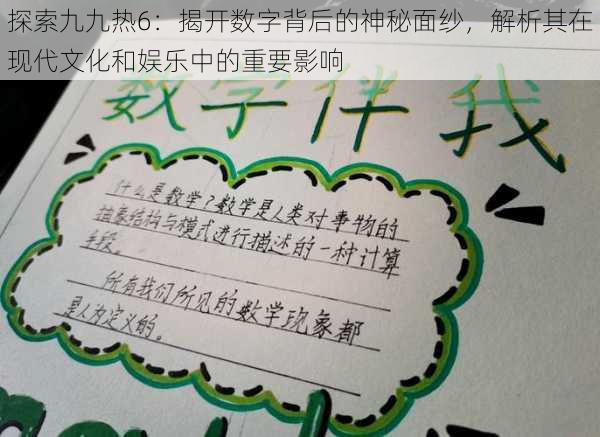 探索九九热6：揭开数字背后的神秘面纱，解析其在
现代文化和娱乐中的重要影响
数字伴我
什么是数学？数学是人类对事物的
抽象结构与模式进行描述的一种计算
手段。
所有我们所见的数学现象都
是人为定义的。